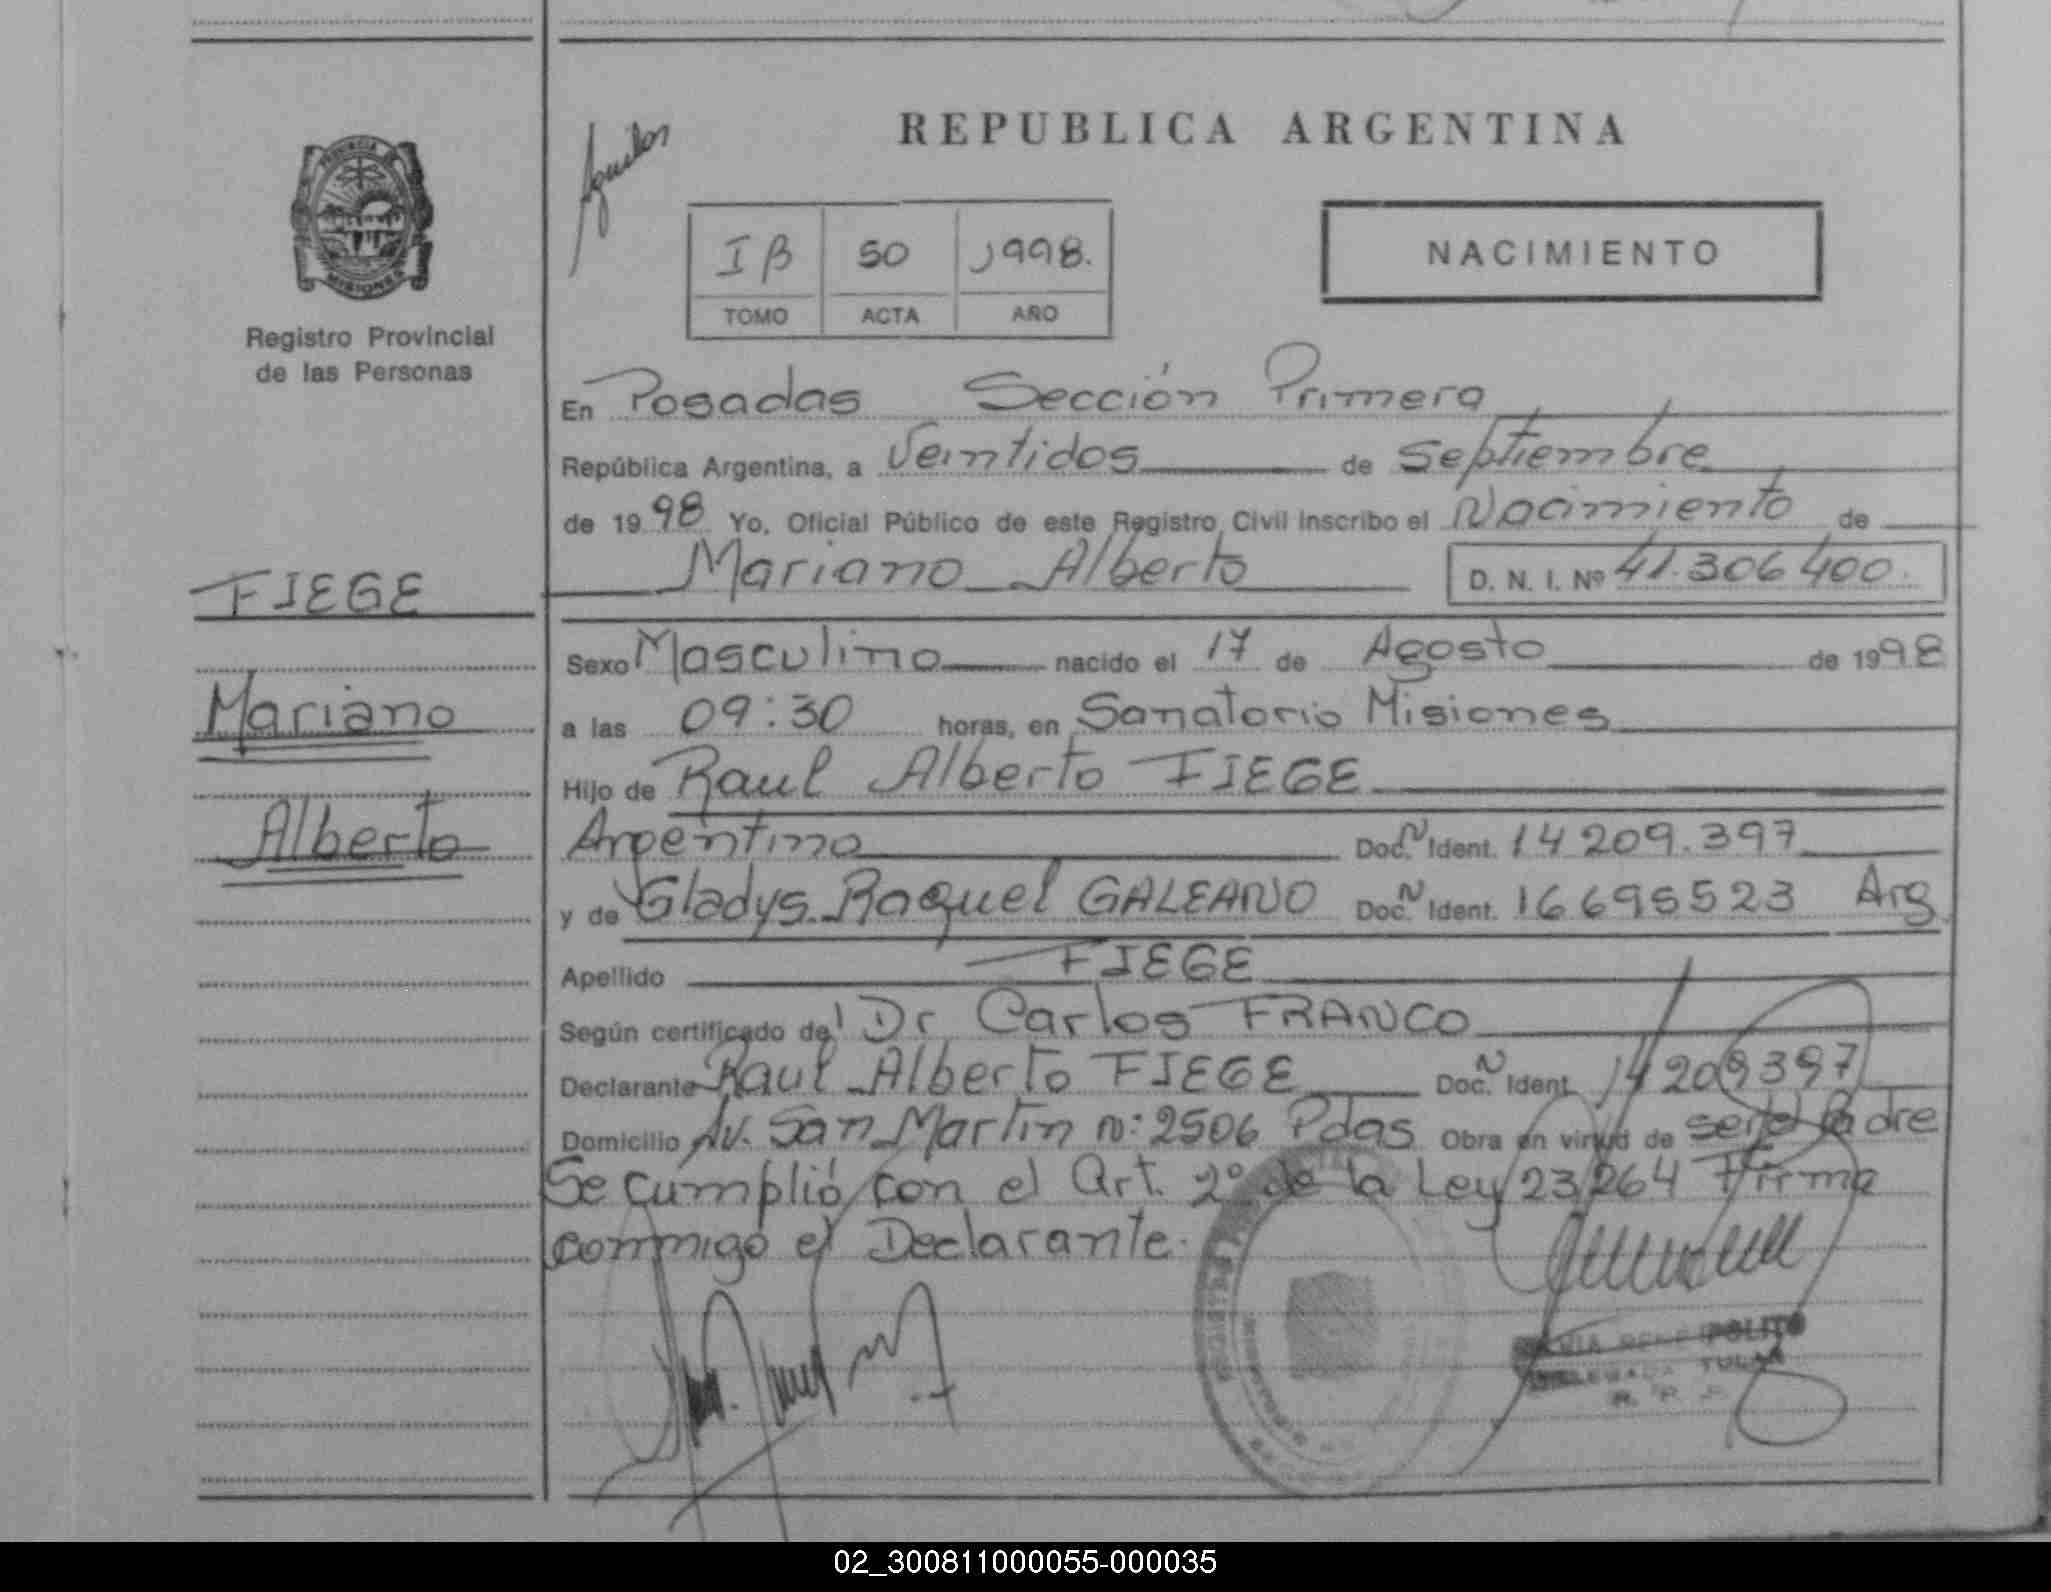 REPUBLICA ARGENTINA
PROVINCIA DE
MISIONES
Registro Provincial
de las Personas
I B 50 1998.
TOMO ACTA AÑO
NACIMIENTO
En Posadas Sección Primera
República Argentina, a Veintidos de Septiembre
de 1998 Yo, Oficial Público de este Registro Civil inscribo el Nacimiento de
Mariano Alberto D. N. I. Nº 41.306400.
FIEGE
Sexo Masculino nacido el 17 de Agosto de 1998
Mariano
a las 09:30 horas, en Sanatorio Misiones
Hijo de Raul Alberto FIEGE
Alberto
Argentino Doc. N Ident. 14209.397
y de Gladys Raquel GALEANO Doc. N Ident. 16695523 Arg
Apellido FIEGE
Según certificado del Dr Carlos FRANCO
Declarante Raul Alberto FIEGE Doc. N Ident. 14209397
Domicilio Av. San Martin n: 2506 Pdas Obra en virtud de ser el Padre
Se cumplió con el Art. 2º de la Ley 23264 Firma
conmigo el Declarante.
R. P. P.
02_300811000055-000035